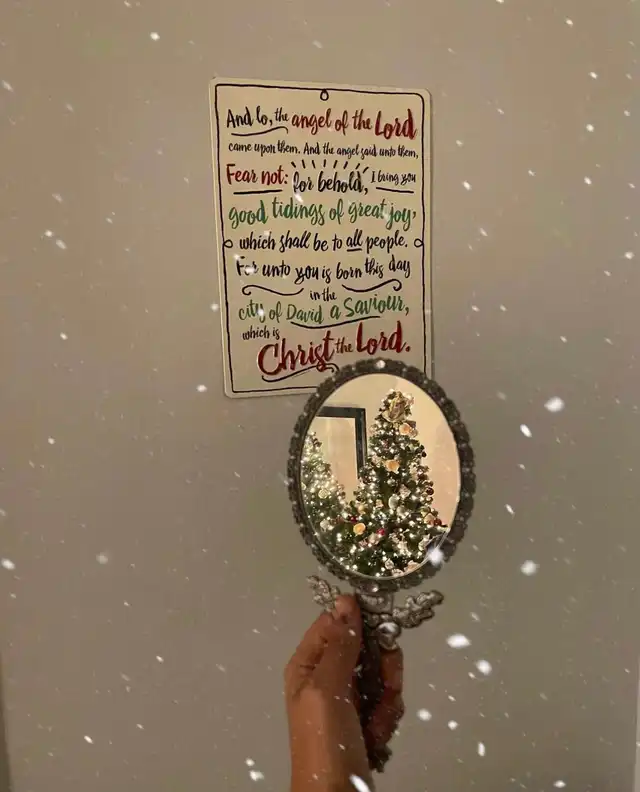 And lo, the angel of the Lord
came upon them. And the angel said unto them,
Fear not: for behold, I bring you
good tidings of great joy,
which shall be to all people.
For unto you is born this day
in the
city of David a Saviour,
which is
Christ the Lord.